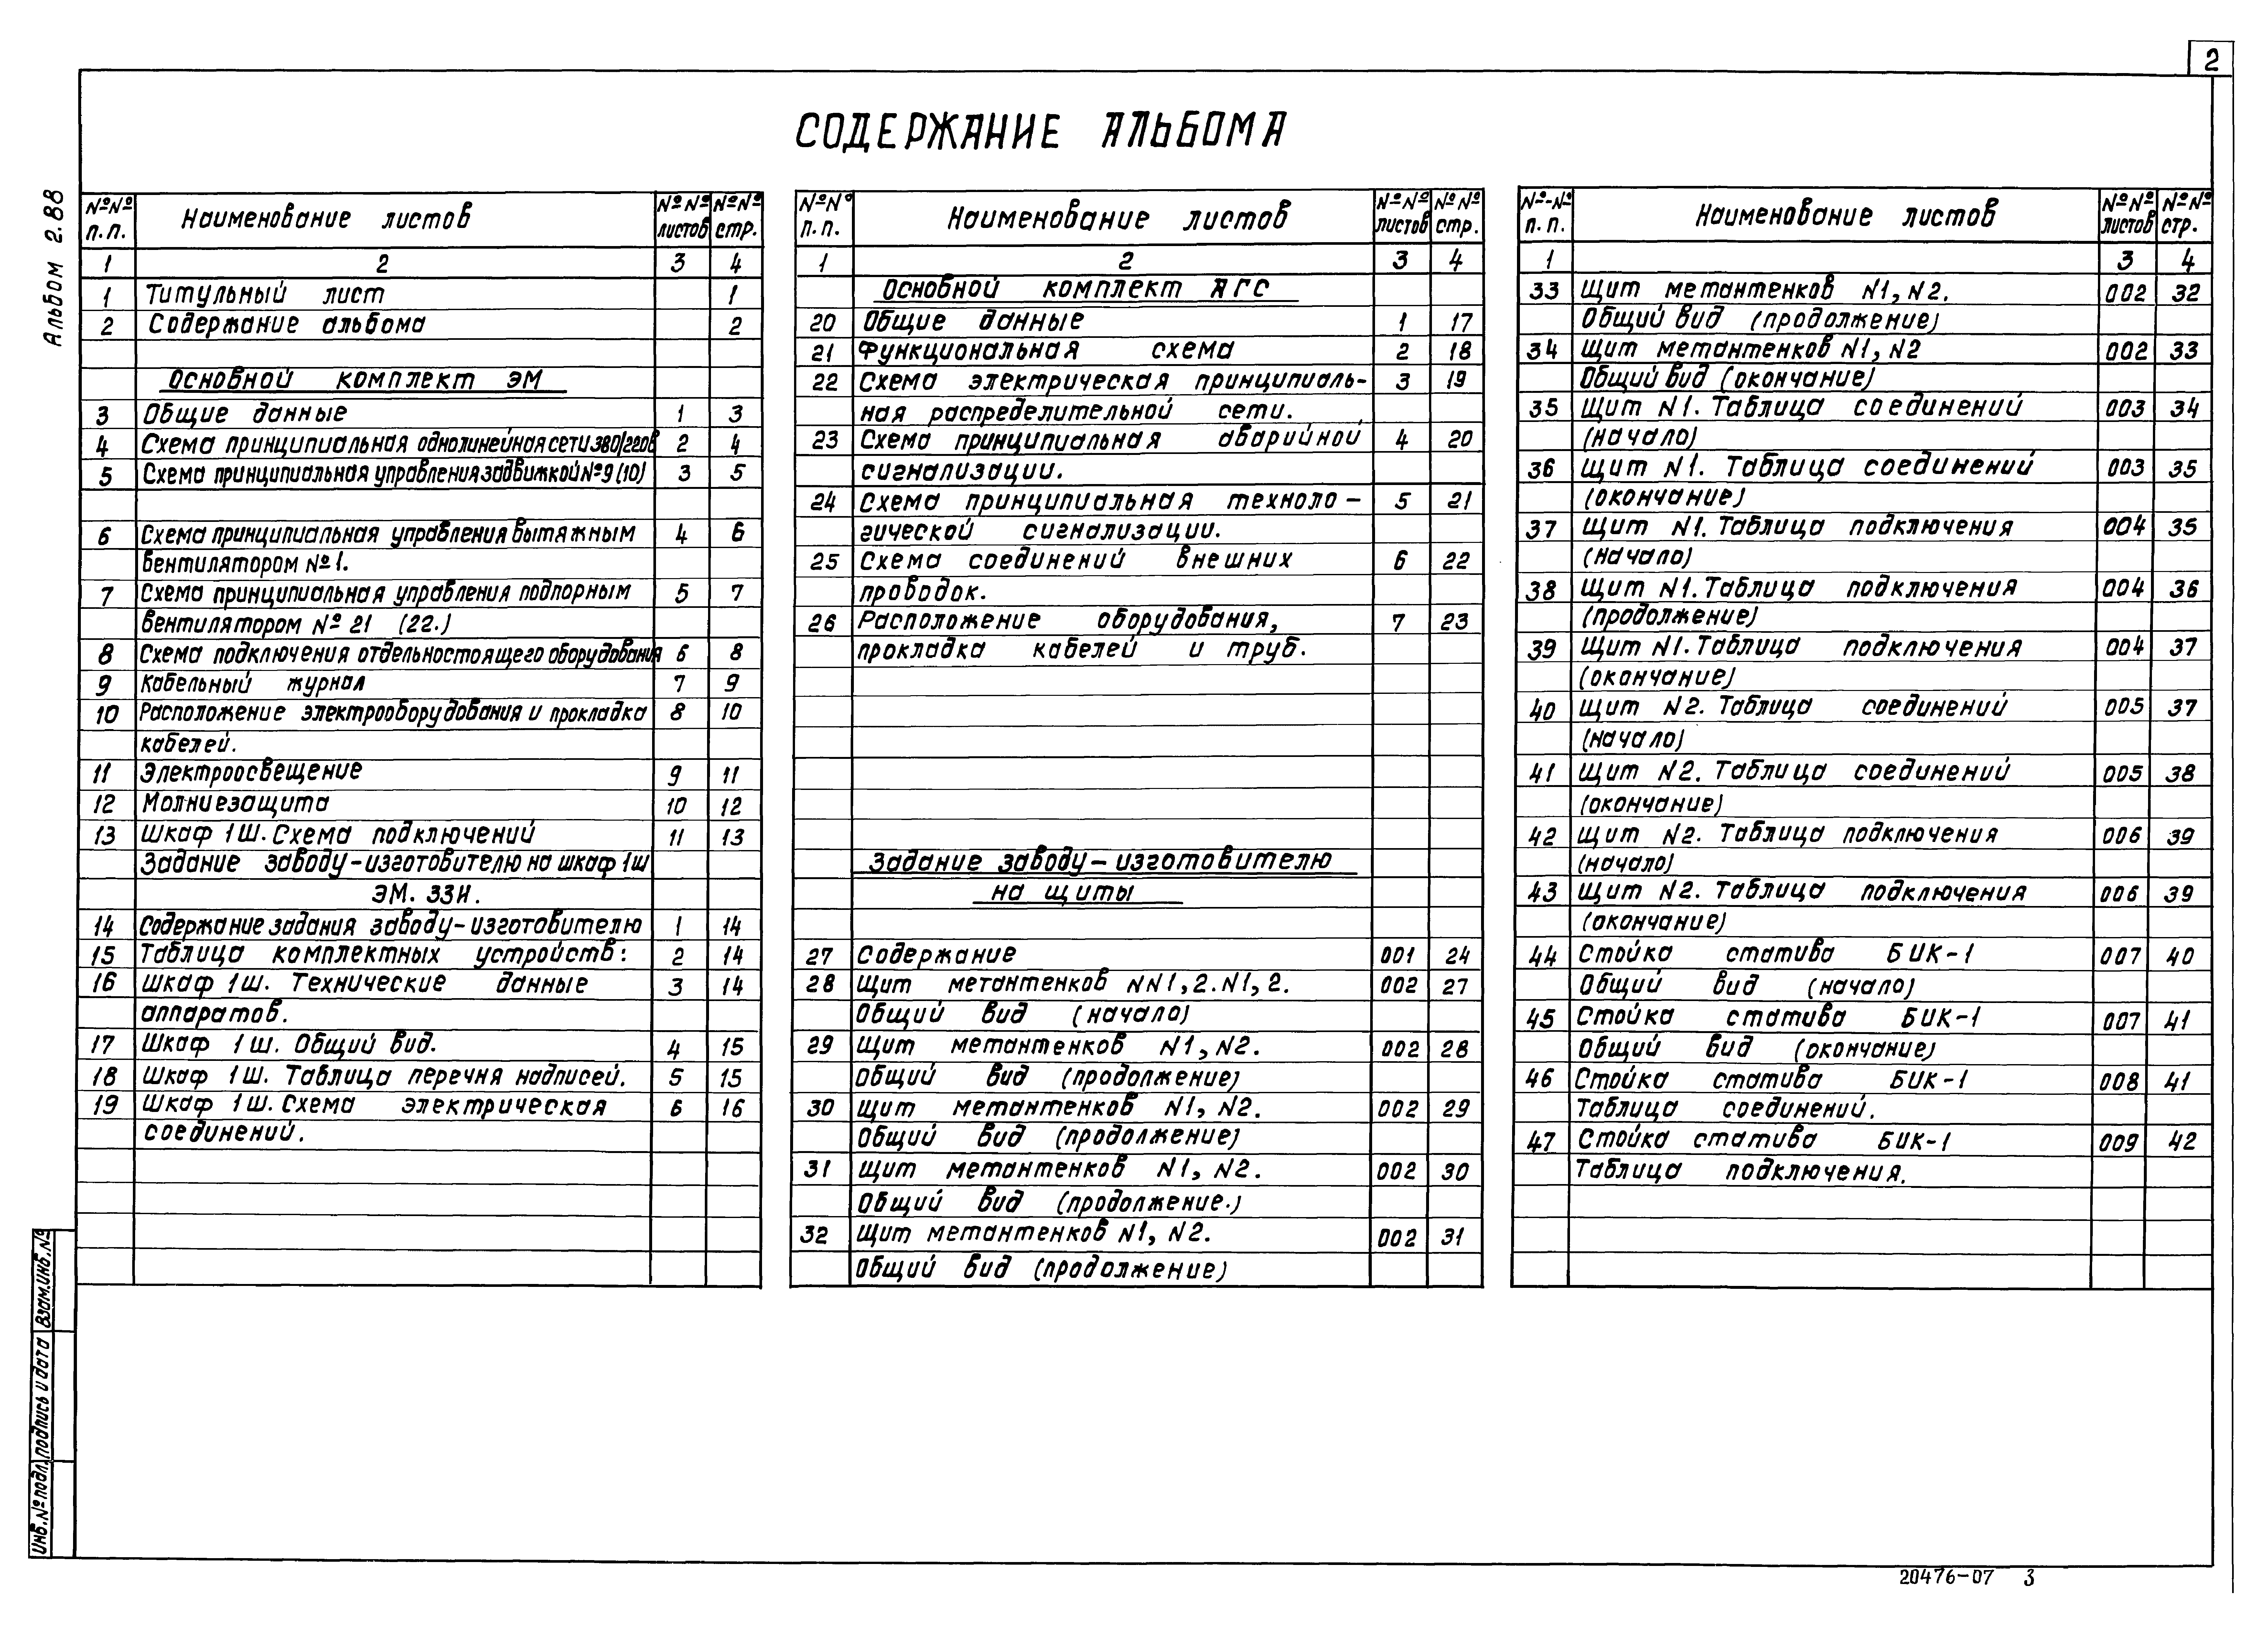 2
СОДЕРЖАНИЕ АЛЬБОМА
Альбом 2.88
№№ п.п. Наименование листов №№ листов №№ стр.
1 2 3 4
1 Титульный лист 1
2 Содержание альбома 2
Основной комплект ЭМ
3 Общие данные 1 3
4 Схема принципиальная однолинейная сети 380/220в 2 4
5 Схема принципиальная управления задвижкой №9 (10) 3 5
6 Схема принципиальная управления вытяжным 4 6
вентилятором №1.
7 Схема принципиальная управления подпорным 5 7
вентилятором №21 (22.)
8 Схема подключения отдельностоящего оборудования 6 8
9 Кабельный журнал 7 9
10 Расположение электрооборудования и прокладка 8 10
кабелей.
11 Электроосвещение 9 11
12 Молниезащита 10 12
13 Шкаф 1Ш. Схема подключений 11 13
Задание заводу-изготовителю на шкаф 1ш
ЭМ. ЗЗИ.
14 Содержание задания заводу-изготовителю 1 14
15 Таблица комплектных устройств: 2 14
16 Шкаф 1ш. Технические данные 3 14
аппаратов.
17 Шкаф 1ш. Общий вид. 4 15
18 Шкаф 1ш. Таблица перечня надписей. 5 15
19 Шкаф 1ш. Схема электрическая 6 16
соединений.
№№ п.п. Наименование листов №№ листов №№ стр.
1 2 3 4
Основной комплект АГС
20 Общие данные 1 17
21 Функциональная схема 2 18
22 Схема электрическая принципиаль- 3 19
ная распределительной сети.
23 Схема принципиальная аварийной 4 20
сигнализации.
24 Схема принципиальная техноло- 5 21
гической сигнализации.
25 Схема соединений внешних 6 22
проводок.
26 Расположение оборудования, 7 23
прокладка кабелей и труб.
Задание заводу-изготовителю
на щиты
27 Содержание 001 24
28 Щит метантенков NN1,2.N1,2. 002 27
Общий вид (начало)
29 Щит метантенков N1, N2. 002 28
Общий вид (продолжение)
30 Щит метантенков N1, N2. 002 29
Общий вид (продолжение)
31 Щит метантенков N1, N2. 002 30
Общий вид (продолжение.)
32 Щит метантенков N1, N2. 002 31
Общий вид (продолжение)
№-№ п.п. Наименование листов №№ листов №№ стр.
1 3 4
33 Щит метантенков N1, N2. 002 32
Общий вид (продолжение)
34 Щит метантенков N1, N2 002 33
Общий вид (окончание)
35 Щит N1. Таблица соединений 003 34
(начало)
36 Щит N1. Таблица соединений 003 35
(окончание)
37 Щит N1. Таблица подключения 004 35
(начало)
38 Щит N1. Таблица подключения 004 36
(продолжение)
39 Щит N1. Таблица подключения 004 37
(окончание)
40 Щит N2. Таблица соединений 005 37
(начало)
41 Щит N2. Таблица соединений 005 38
(окончание)
42 Щит N2. Таблица подключения 006 39
(начало)
43 Щит N2. Таблица подключения 006 39
(окончание)
44 Стойка статива БИК-1 007 40
Общий вид (начало)
45 Стойка статива БИК-1 007 41
Общий вид (окончание)
46 Стойка статива БИК-1 008 41
Таблица соединений.
47 Стойка статива БИК-1 009 42
Таблица подключения.
Инв.№подл. Подпись и дата Взам.инв.№
20476-07 3